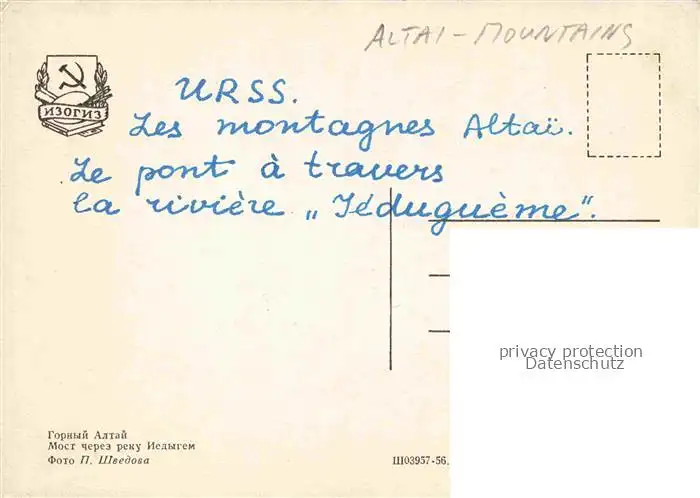 ALTAI - MOUNTAINS
ИЗОГИЗ
URSS.
Les montagnes Altaï.
Le pont à travers
la rivière „Iéduguème".
privacy protection
Datenschutz
Горный Алтай
Мост через реку Иедыгем
Фото П. Шведова
Ш03957-56.